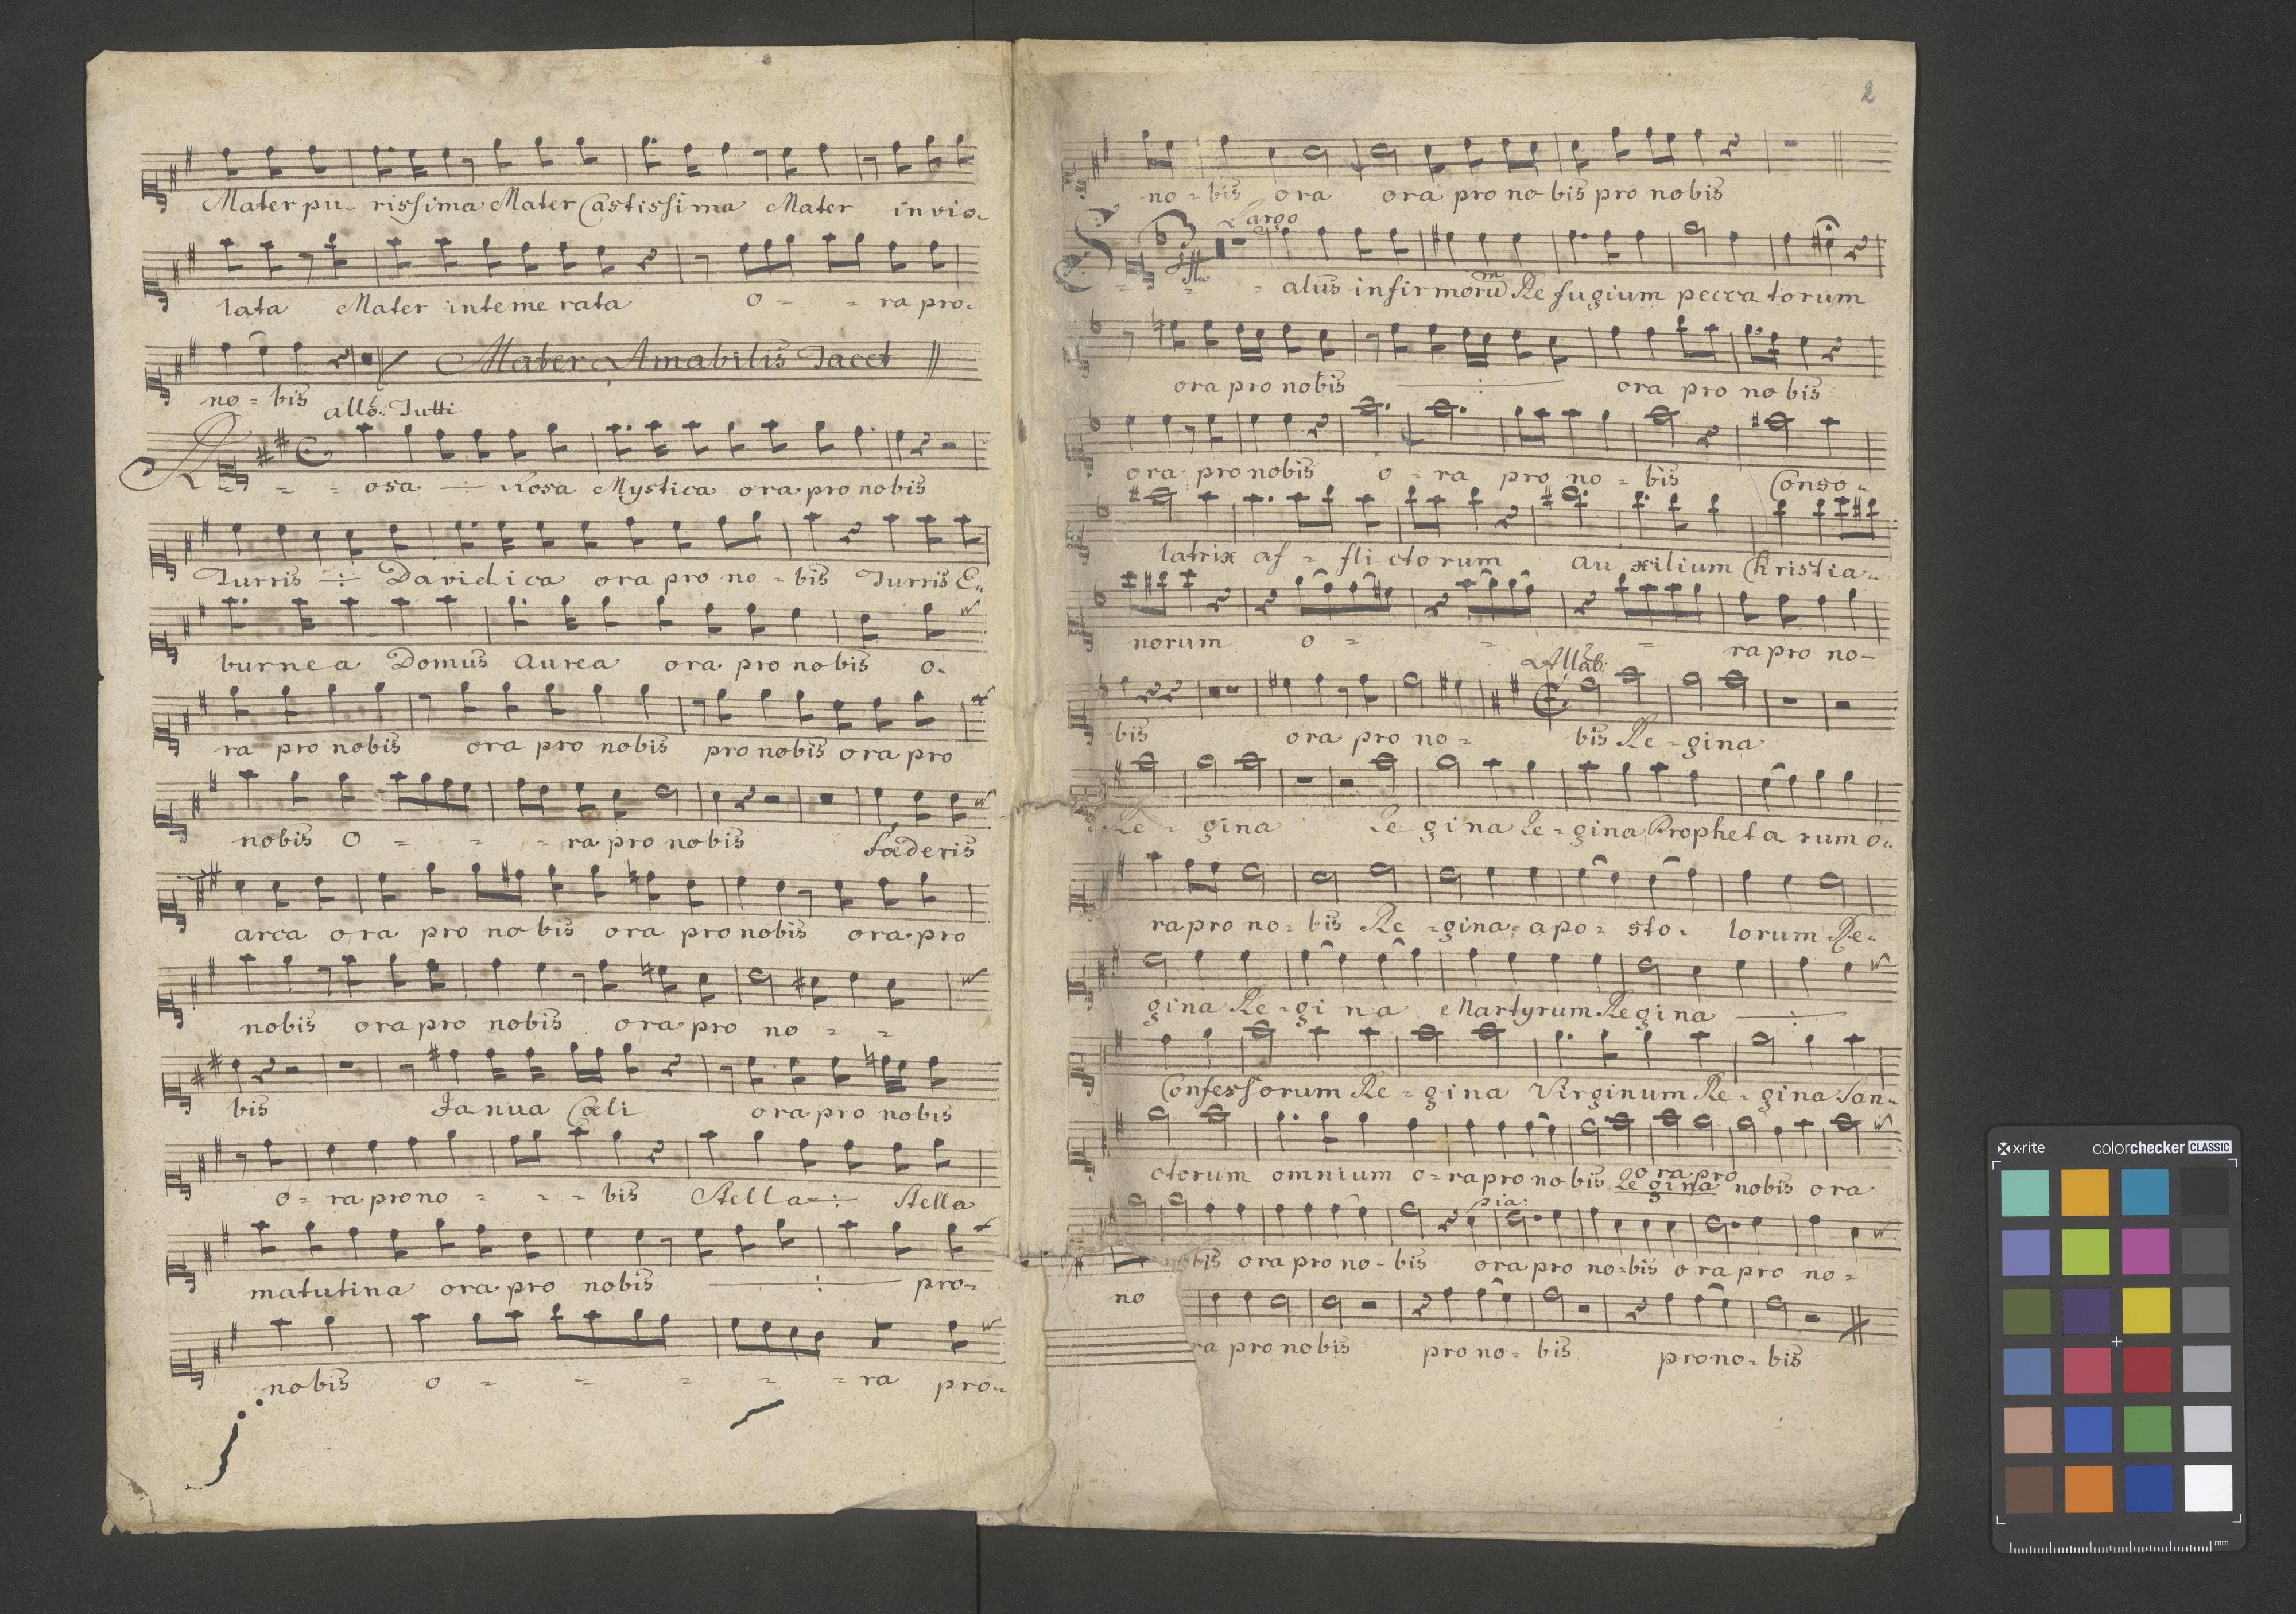 Mater pu- rissima Mater Castissima Mater invio-
lata Mater inte me rata o - - ra pro-
Mater Amabilis Tacet
no - bis
allo: Tutti
Rosa Rosa Mystica ora pro nobis
Turris Davidica ora pro no - bis Turris E-
burnea Domus aurea ora pro nobis o-
ra pro nobis ora pro nobis pro nobis ora pro
nobis O - - - ra pro nobis fœderis
arca ora pro nobis ora pro nobis ora pro
nobis ora pro nobis ora pro no - -
bis Janua Cœli ora pro nobis
o - ra pro no - - - bis Stella Stella
matutina ora pro nobis pro-
nobis o - - - - - ra pro-
2
no - bis ora ora pro no bis pro nobis
Largo
Salus infirmorum Refugium pecca torum
ora pro nobis ora pro nobis
ora pro nobis o - ra pro no - bis Conso-
latrix af - fli ctorum au xilium Christia-
norum o - - - ra pro no-
Allab:
bis ora pro no - bis Re - gina
Re - gina Re gina Re - gina Propheta rum o-
ra pro no - bis Re - gina apo - sto - lorum Re-
gina Re - gi na Martyrum Regina
Confessorum Re - gina Virginum Re - gina San-
ctorum omnium o - ra pro nobis ora pro nobis ora
Regina
pia:
nobis ora pro no - bis ora pro no - bis ora pro no -
no
ra pro nobis pro no - bis pro no - bis
x-rite colorchecker CLASSIC
mm